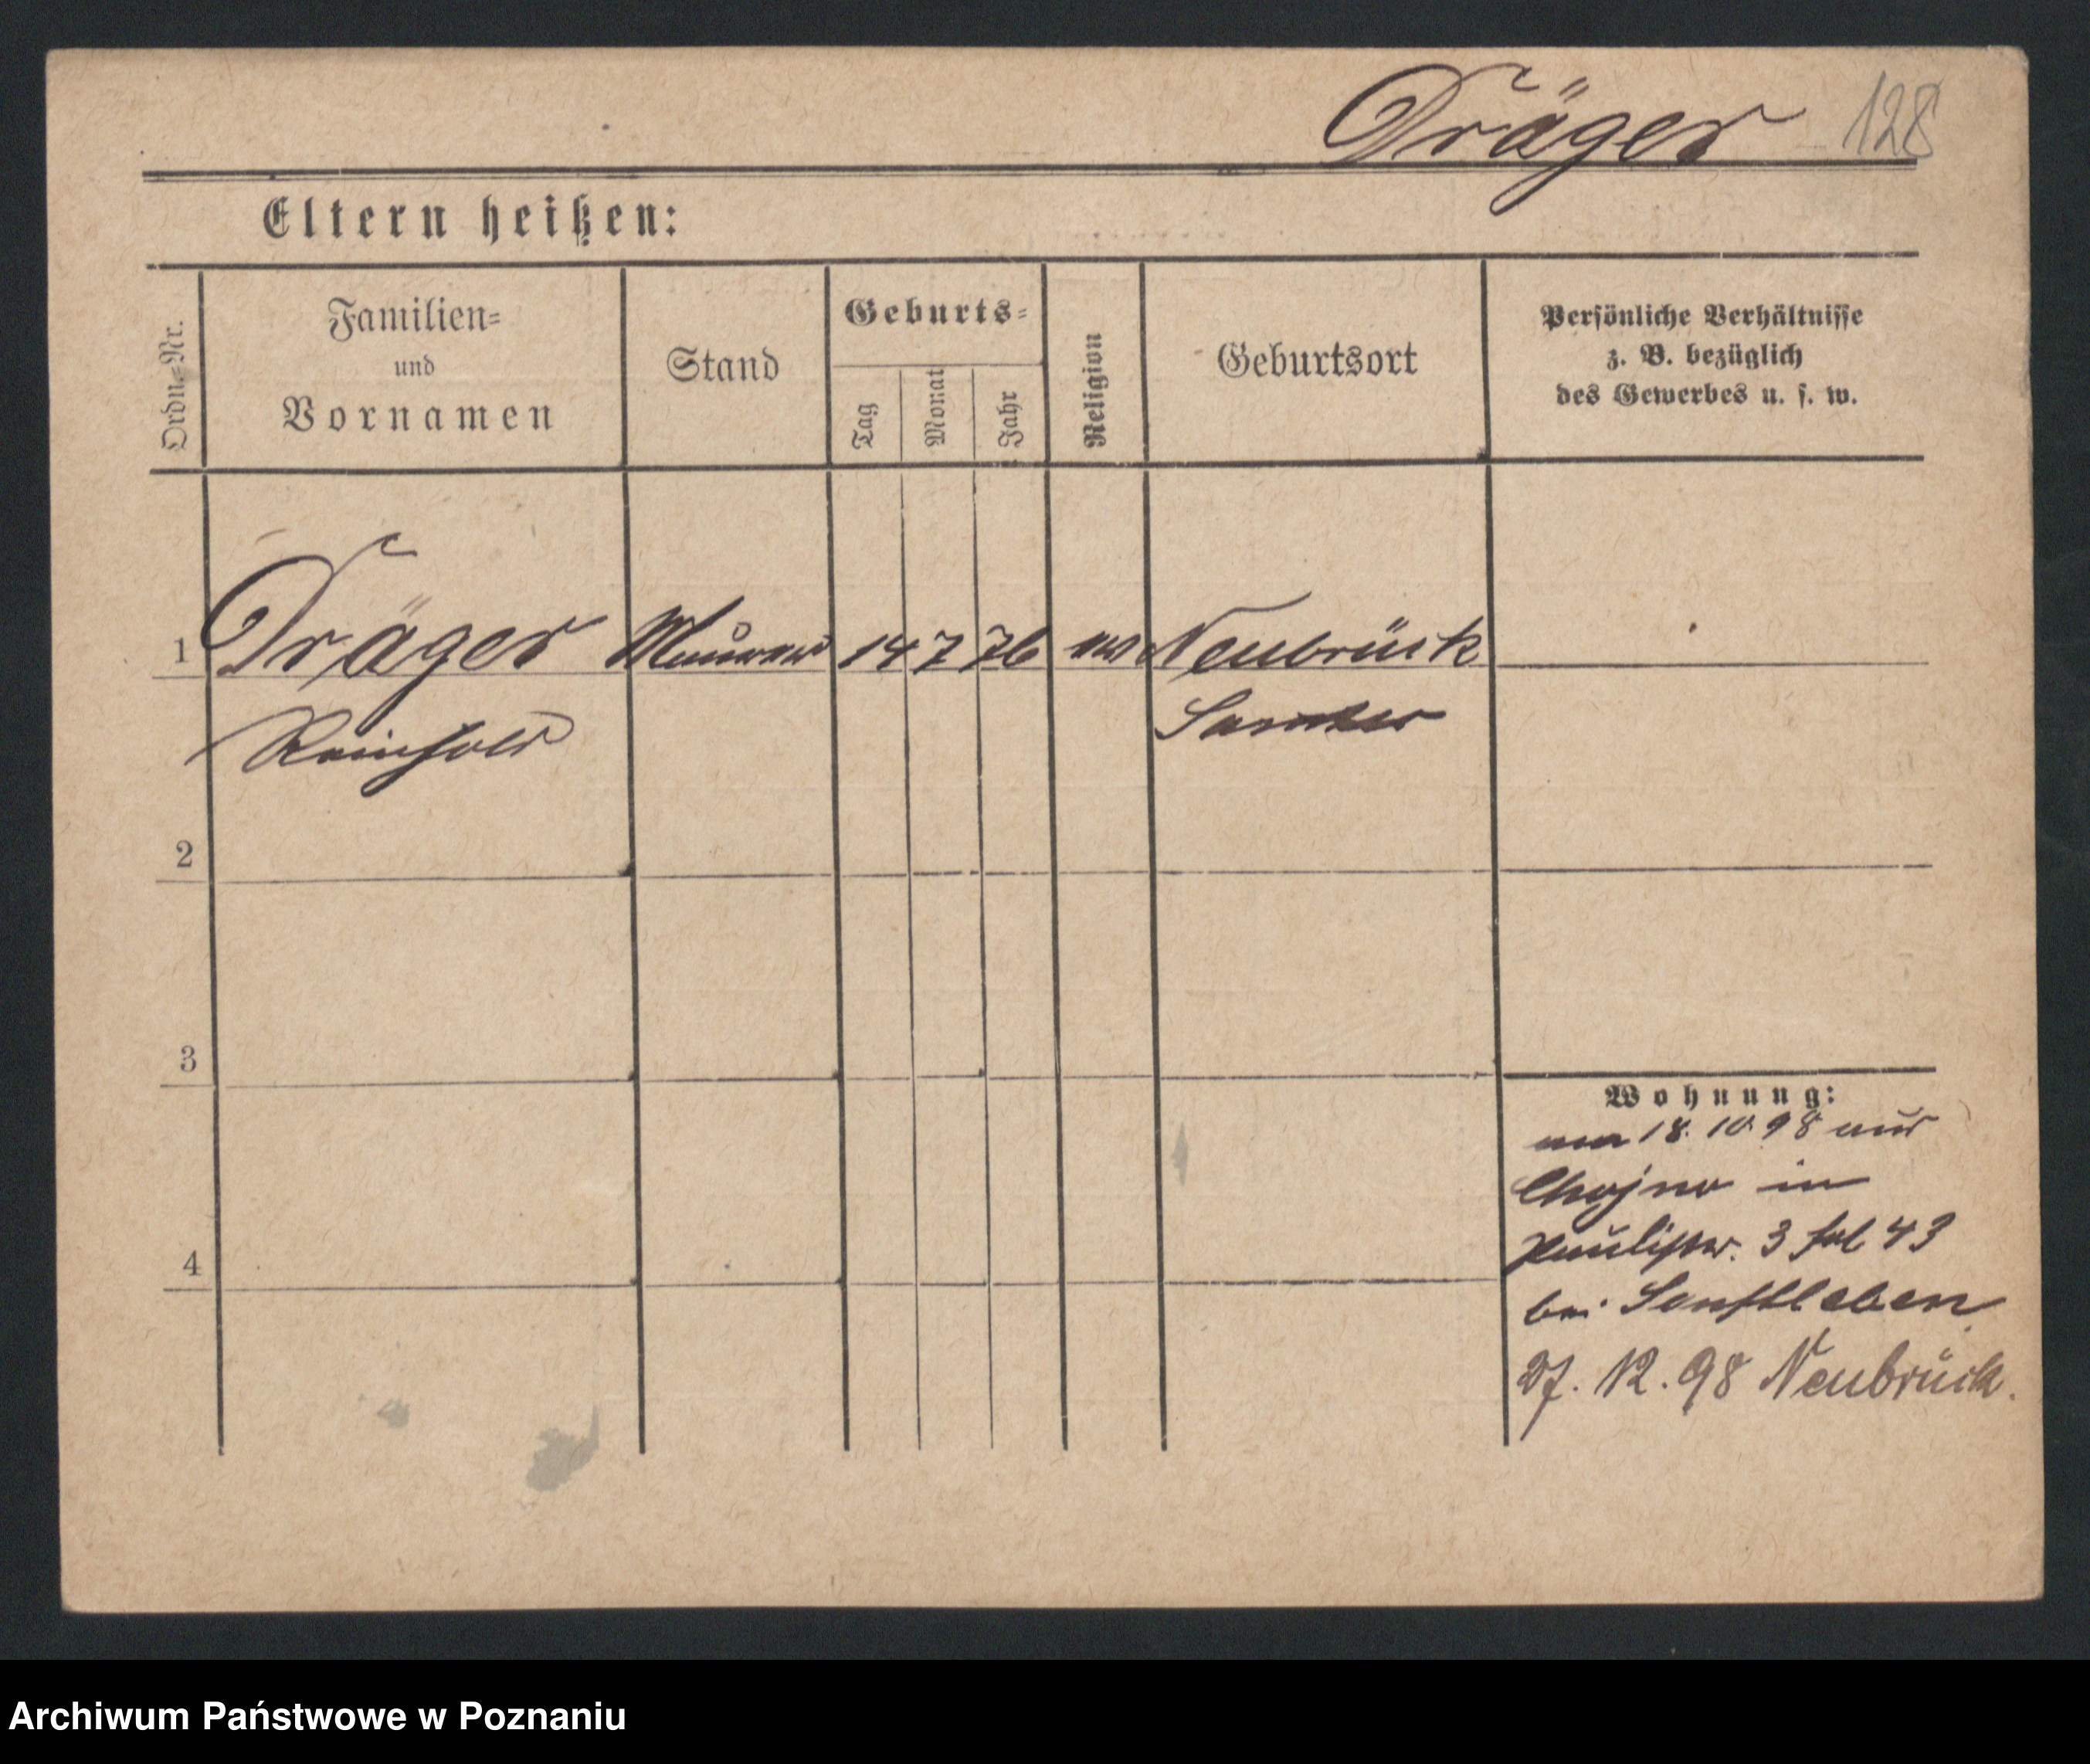 Dräger 128
Eltern heißen:
Ordn.=Nr.
Familien=
und
Vornamen
Stand
Geburts=
Tag
Monat
Jahr
Religion
Geburtsort
Persönliche Verhältnisse
z. B. bezüglich
des Gewerbes u. s. w.
1 Dräger Maurer 14 7 76 ev Neubrück
Reinhold Samter
2
3
4
Wohnung:
18. 10. 98 aus
Chojno in
3 43
bei Senftleben
27. 12. 98 Neubrück.
Archiwum Państwowe w Poznaniu